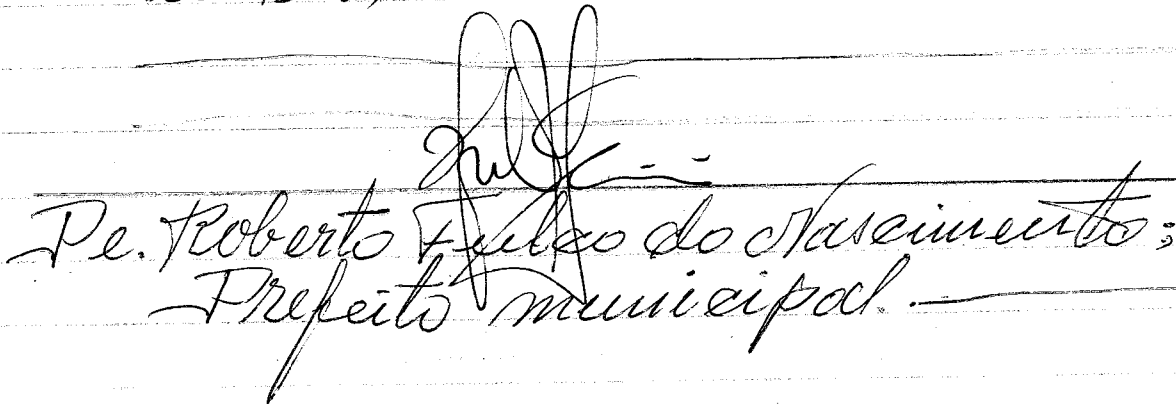 Pe. Roberto Fulco do Nascimento;
Prefeito municipal.